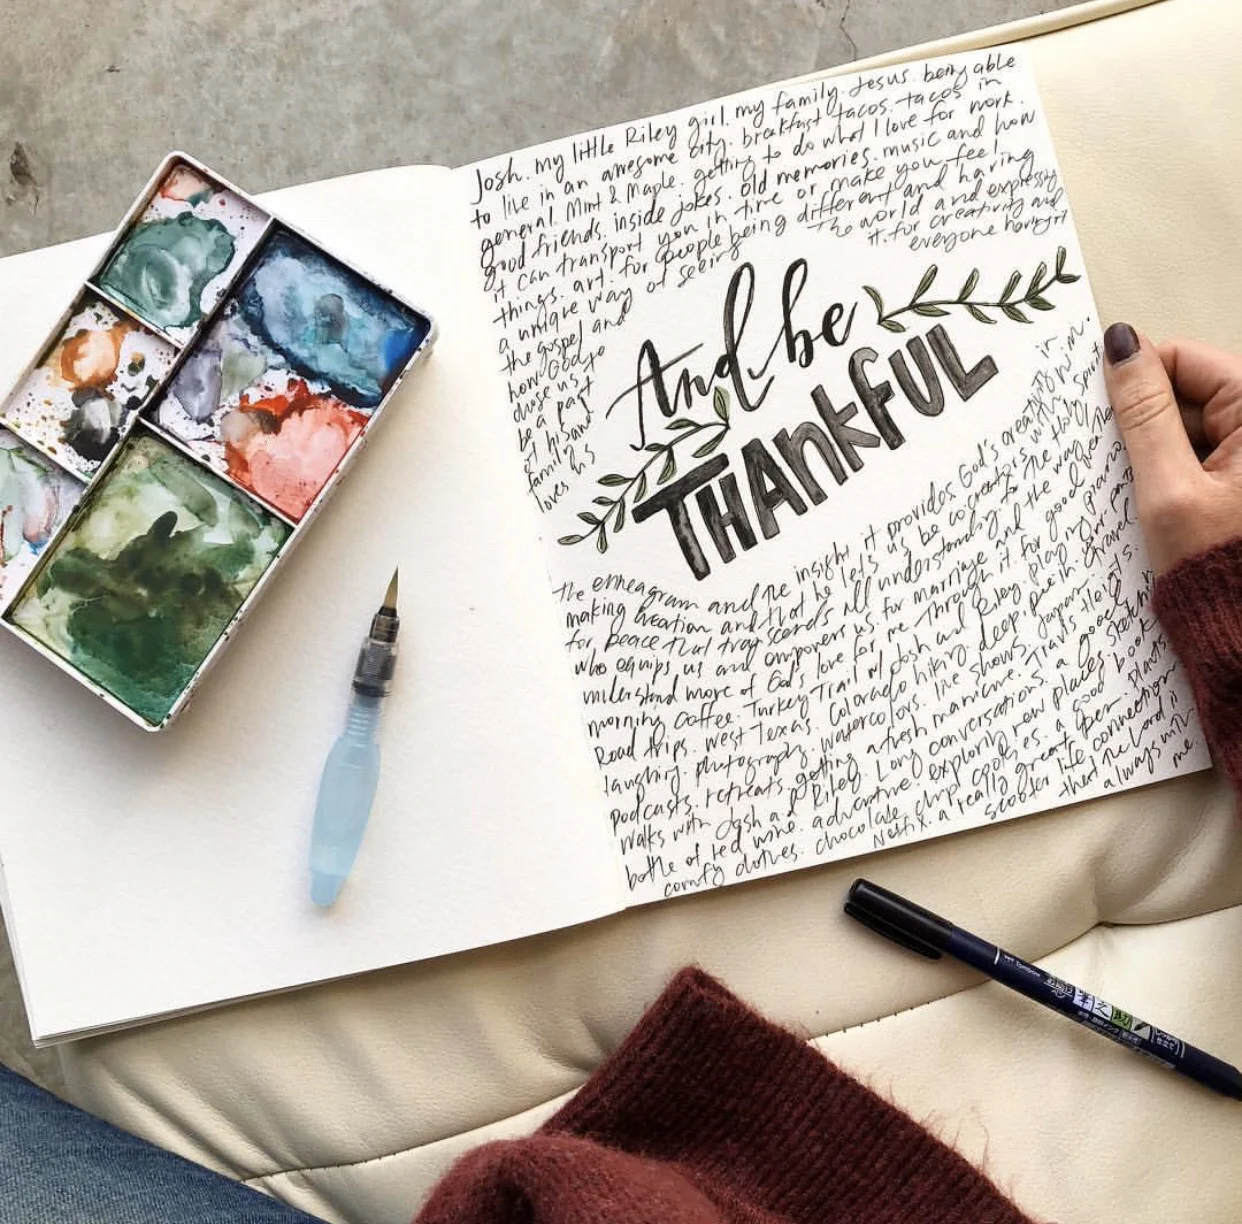 Josh. my little Riley girl. my family. Jesus. being able
to live in an awesome city. breakfast tacos. tacos in
general. Mint & Maple. getting to do what I love for work.
good friends. inside jokes. old memories. music and how
it can transport you in time or make you feel
things. art. for people being different and having
a unique way of seeing the world and expressing
it. for creativity and
everyone having it
the gospel and
how God
chose us to
be a part
of his
family and
loves us
And be
THANKFUL
the enneagram and the insight it provides. God's creativity in
making creation and that he lets us be co-creators with him.
for peace that transcends all understanding. to the Holy Spirit
who equips us and empowers us. for marriage and the way
understand more of God's love for me through it. for good
morning coffee. Turkey Trail. Josh and Riley. playing piano.
Road trips. West Texas. Colorado hiking. deep
laughing. photography. watercolors. live shows. Japan. travel
podcasts. retreats. getting a fresh manicure. Travis Heights.
walks with Josh and Riley. Long conversations. a good
bottle of red wine. adventure. exploring new places. sketching
comfy clothes. chocolate chip cookies. a good book.
Netflix. a really great pen. plants.
scooter life. connection
that the Lord is
always with
me.
Tombow